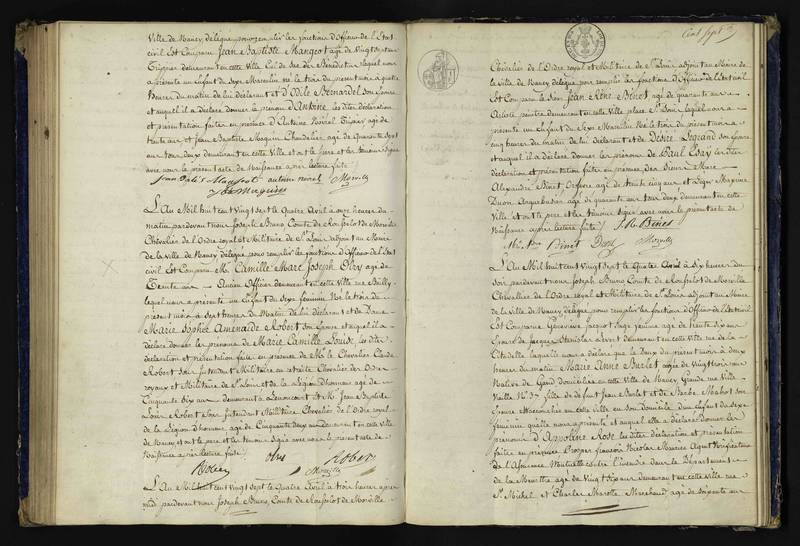 Ville de Nancy délégué pour remplir les fonctions d'Officier de l'Etat
civil Est Comparu Jean Baptiste Mangeot agé de Vingt sept ans
demeurant en cette Ville laquel nous
a présenté un Enfant du Sexe Masculin né le trois du présent mois à quatre
heures du matin de lui déclarant et d'Odile Bernardel son Epouse
et auquel il a déclaré donner le prénom d'Antoine les dites déclaration
et présentation faites en présence d'Antoine Noirel agé de
trente ans et Jean Baptiste Maguin Chandelier agé de Quarante sept
ans tous deux demeurant en cette Ville et ont le père et les temoins signé
avec nous le présent acte de Naissance après lecture faite
antoine noirel Morville
L'An Mil huit cent Vingt sept le Quatre Avril à onze heures du
matin pardevant nous Joseph Bruno Comte de Rouffelot de Morville
Chevalier de l'Ordre royal et Militaire de St Louis adjoint au Maire
de la Ville de Nancy délégué pour remplir les fonctions d'Officier de l'Etat
civil Est Comparu Mr. Camille Marc Joseph Olry agé de
Trente ans Ancien Officier demeurant en cette Ville rue
lequel nous a présenté un Enfant du Sexe féminin Né le trois du
présent mois à sept heures du Matin de lui déclarant et de Dame
Marie Sophie Amenaide Robert son Epouse et auquel il a
déclaré donner les prénoms de Marie Camille Louise les dites
déclaration et présentation faites en présence de Mr. le Chevalier Claude
Robert Sous Intendant Militaire en retraite Chevalier des Ordres
royaux et Militaire de St Louis et de la Légion d'honneur agé de
Cinquante dix ans demeurant à Lenoncourt et Mr. Jean Baptiste
Louis Robert Sous Intendant Militaire Chevalier de l'Ordre royal
de la Légion d'honneur, agé de Cinquante deux ans demeurant en cette Ville
de Nancy et ont le père et les temoins signé avec nous le présent acte de
Naissance après lecture faite
Robert Olry Robert
Morville
L'An Mil huit cent Vingt sept le Quatre Avril à trois heures après
midi pardevant nous Joseph Bruno Comte de Rouffelot de Morville
Cent sept
Chevalier de l'Ordre royal et Militaire de St Louis adjoint au Maire de
la Ville de Nancy délégué pour remplir les fonctions d'Officier de l'Etat civil
Est Comparu le Sieur Jean René Binet agé de quarante ans
Artiste peintre demeurant en cette Ville place St. laquel nous a
présenté un Enfant du Sexe Masculin Né le trois du présent mois à
cinq heures du matin de lui déclarant et de Désirée Legrand son Epouse
et auquel il a déclaré donner les prénoms de Paul les dites
déclaration et présentation faites en présence des Sieurs Marc
Alexandre Binet Orfèvre agé de trente cinq ans et Maxime
Duon Arquebusier agé de quarante ans tous deux demeurant en cette
Ville et ont le père et les temoins signé avec nous le présent acte de
Naissance après lecture faite J. R. Binet
Binet Duon Morville
L'An Mil huit cent Vingt sept le Quatre Avril à Six heures du
soir pardevant nous Joseph Bruno Comte de Rouffelot de Morville
Chevalier de l'Ordre royal et Militaire de St Louis adjoint au Maire
de la Ville de Nancy délégué pour remplir les fonctions d'Officier de l'Etat civil
Est Comparue Geneviève Jacquot Sage femme agé de trente six ans
Epouse de Jacques Stanislas demeurant en cette Ville rue de la
Citadelle laquelle nous a déclaré que le Deux du présent mois à deux
heures du matin Marie Anne Burlet agée de Vingt trois ans
Native de domiciliée en cette Ville de Nancy Grande rue Ville
Vieille No. 37 fille de défunt Jean Burlet et de Barbe Mahot son
Epouse est accouchée en cette Ville en son Domicile d'un Enfant du Sexe
féminin qu'elle nous a présenté et auquel elle a déclaré donner les
prénoms d'Apoline Rose les dites déclaration et présentation
faites en présence Prosper françois Nicolas Agent Vérificateur
de l'Assurance Mutuelle contre l'incendie dans le Département
de la Meurthe agé de Vingt dix ans demeurant en cette Ville rue
St. Michel et Charles Marotte Marchand agé de soixante ans